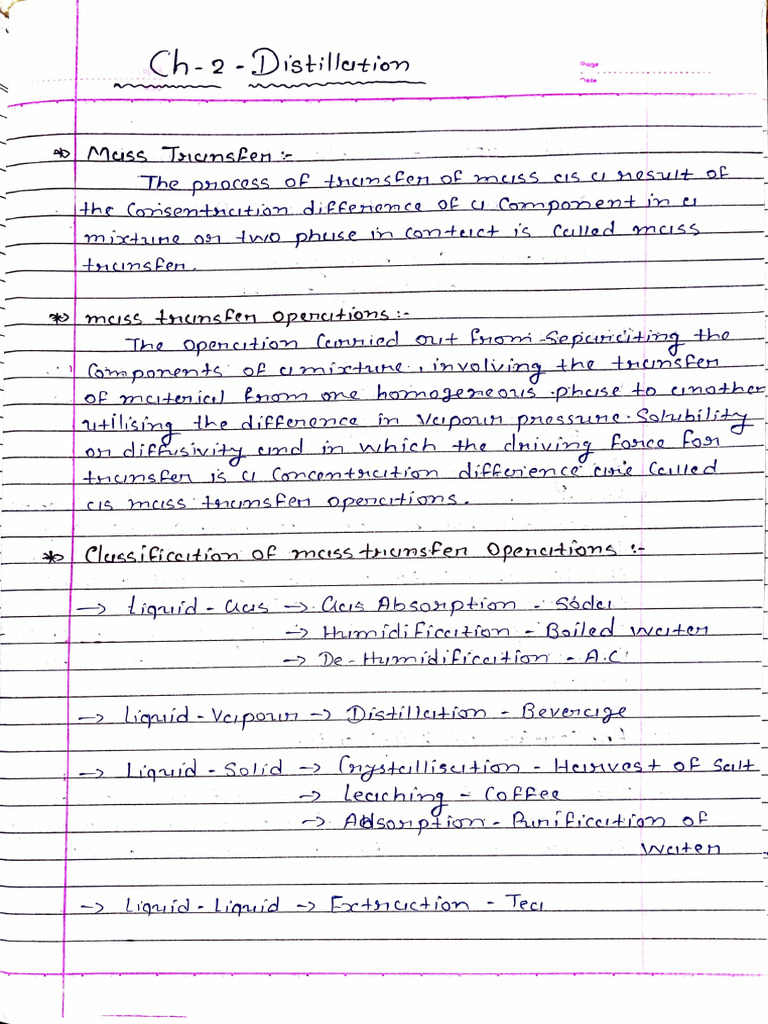 Ch-2-Distillation
Page
Date
* Mass Transfer:-
The process of transfer of mass as a result of
the Consentration difference of a Component in a
mixture or two phase in contact is called mass
transfer.
* mass transfer Operations:-
The Operation Carried out from Separating the
Components of a mixture, involving the transfer
of material from one homogeneous phase to another
utilising the difference in vapour pressure. Solubility
or diffusivity and in which the driving force for
transfer is a Concentration difference are Called
as mass transfer operations.
* Classification of mass transfer Operations :-
→ Liquid - Gas → Gas Absorption - Soda
→ Humidification - Boiled water
→ De-Humidification - A.C
→ Liquid - Vapour → Distillation - Beverage
→ Liquid - Solid → Crystallisation - Harvest of Salt
→ Leaching - Coffee
→ Adsorption - Purification of
water
→ Liquid - Liquid → Extraction - Tea